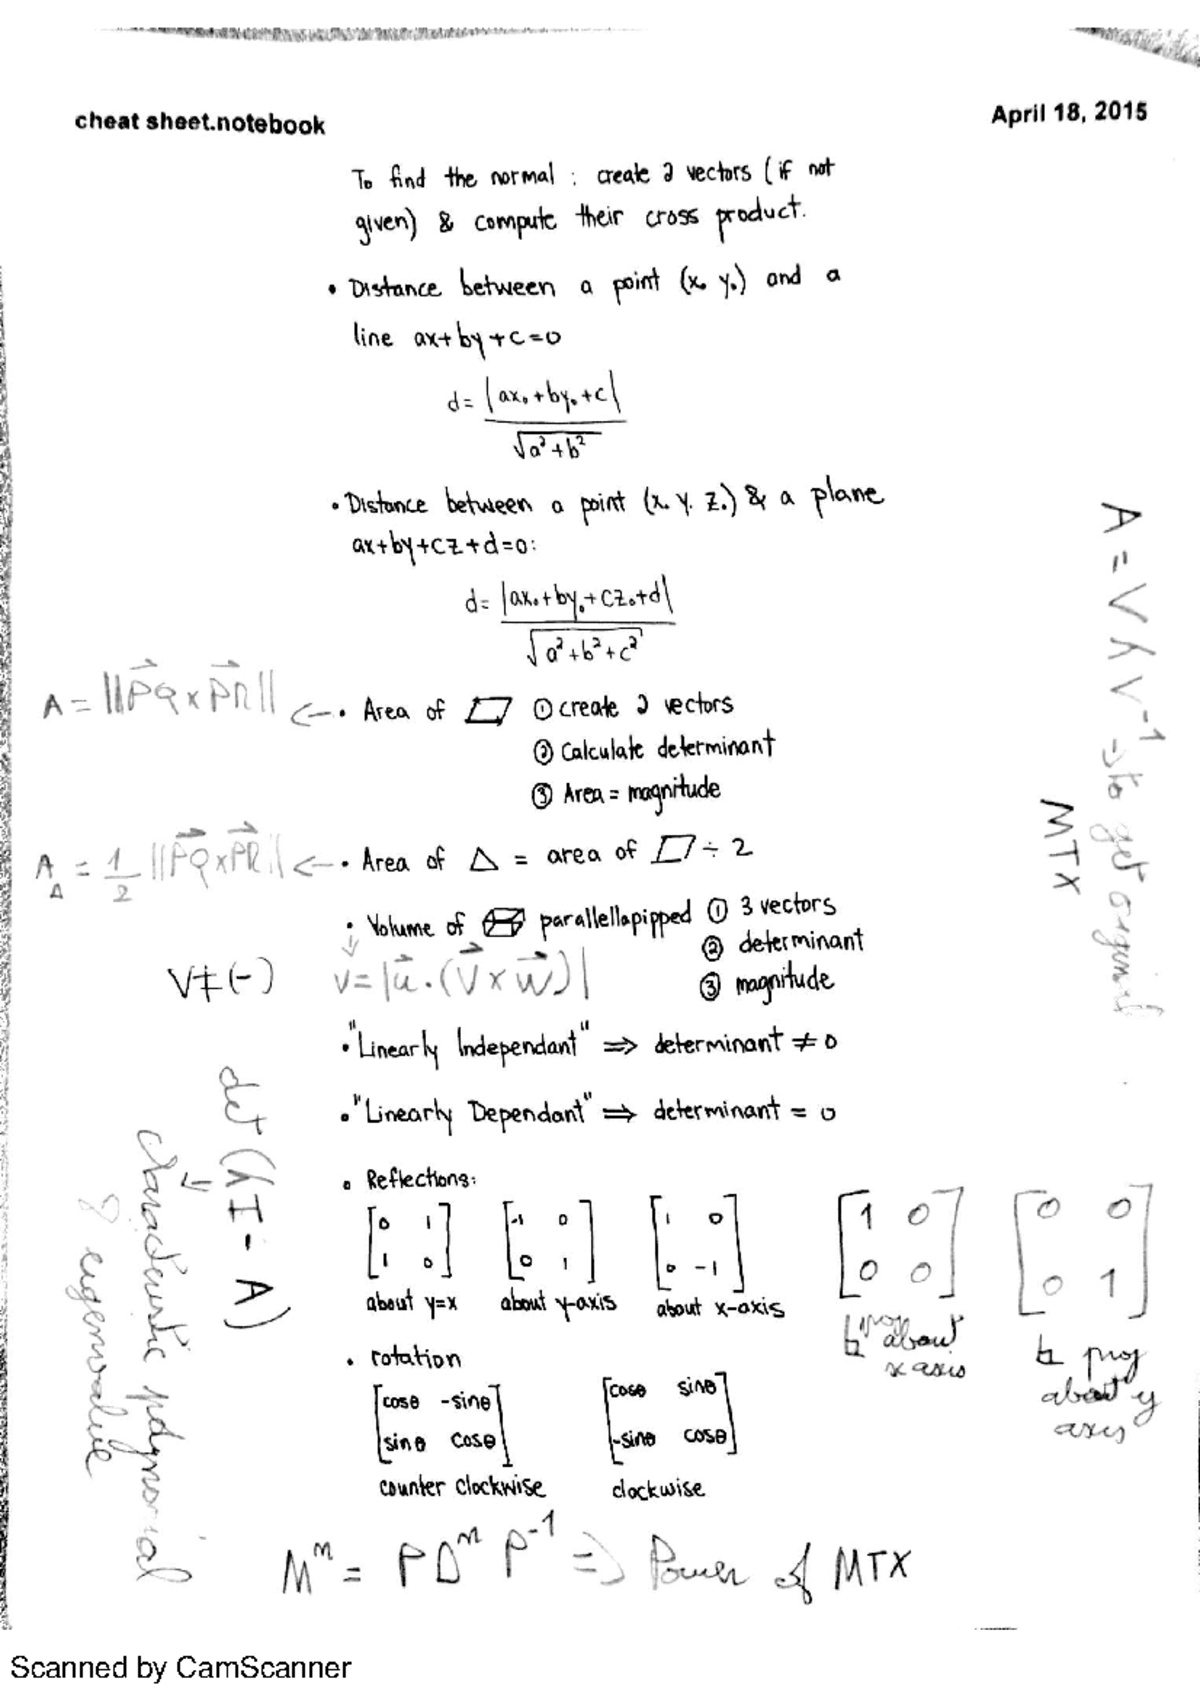 cheat sheet.notebook
April 18, 2015
To find the normal : create 2 vectors (if not
given) & compute their cross product.
• Distance between a point (x₀ y₀) and a
line ax+by+c=0
d= |ax₀+by₀+c|
√a²+b²
• Distance between a point (x₀ y₀ z₀) & a plane
ax+by+cz+d=0:
d= |ax₀+by₀+cz₀+d|
√a²+b²+c²
A = ||PQ x PR|| ← • Area of ▱ ① create 2 vectors
② Calculate determinant
③ Area = magnitude
A△ = 1/2 ||PQ x PR|| ← • Area of △ = area of ▱ ÷ 2
• Volume of parallellapipped ① 3 vectors
② determinant
③ magnitude
V≠(-) V=|u·(V x W)|
• "Linearly Independant" ⇒ determinant ≠ 0
• "Linearly Dependant" ⇒ determinant = 0
• Reflections:
[0 1] [-1 0] [1 0] [1 0] [0 0]
[1 0] [0 1] [0 -1] [0 0] [0 1]
about y=x about y-axis about x-axis
↳ proj about
x axis
↳ proj
about y
axis
• rotation
[cosθ -sinθ] [cosθ sinθ]
[sinθ cosθ] [-sinθ cosθ]
counter clockwise clockwise
M^m = PD^m P^-1 ⇒ Power of MTX
det(λI - A)
characteristic polynomial
& eigenvalue
A = V λ V^-1 → to get original
MTX
Scanned by CamScanner